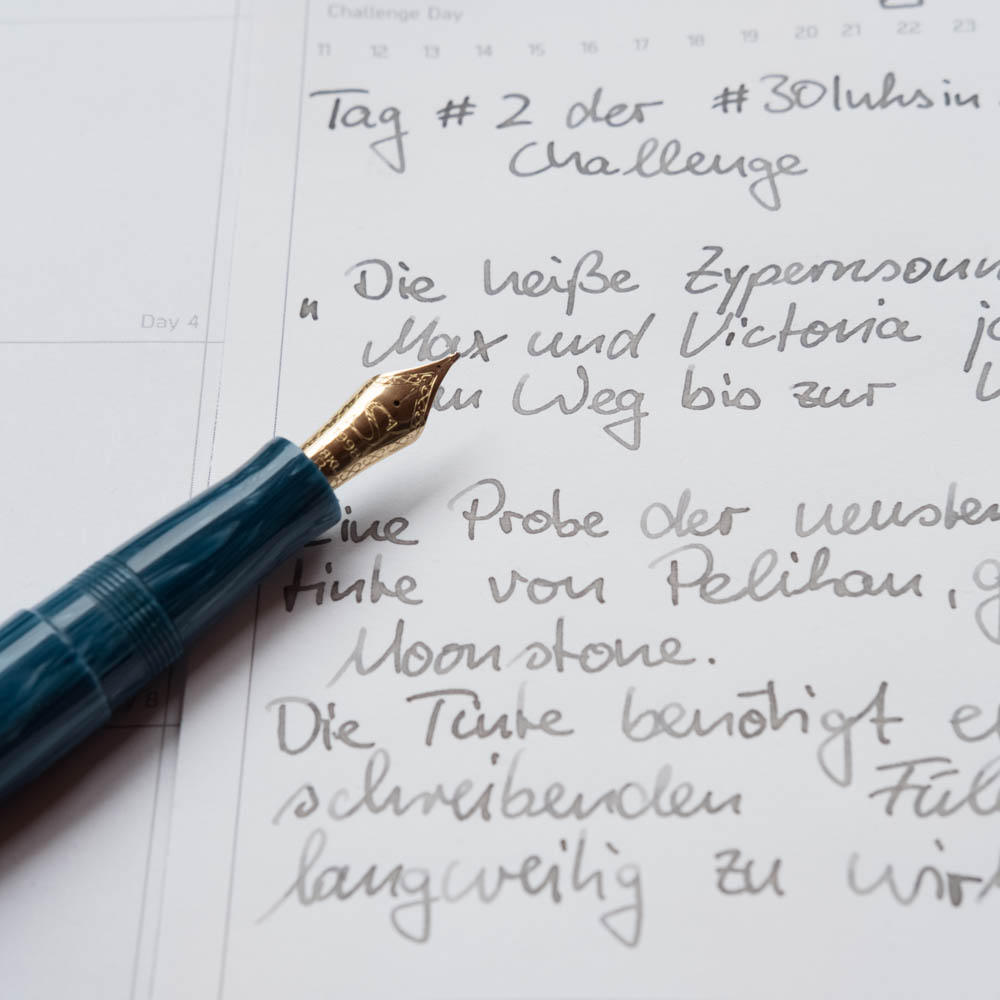 Challenge Day
11 12 13 14 15 16 17 18 19 20 21 22 23
Tag #2 der #30Inksin
Challenge
"Die heiße Zypernsonn
Max und Victoria
Weg bis zur
Day 4
Eine Probe der neusten
tinte von Pelikan, g
Moonstone.
Die Tinte benötigt e
schreibenden Fül
langweilig zu wirk